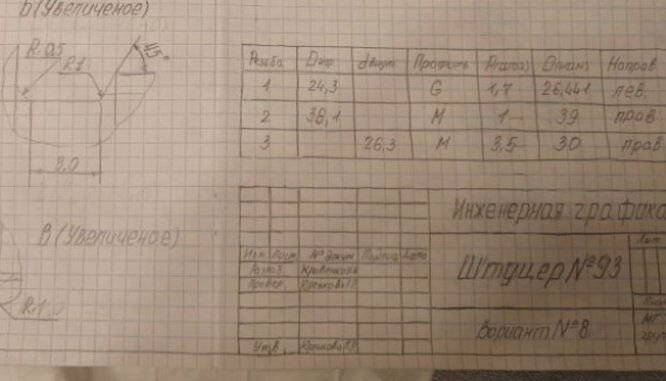 Б(Увеличеное)
R 0,5
R1
45°
3,0
В (Увеличеное)
R1
Резьба Dнар dвнут Профиль P(шаг) D(ном) Направ
1 24,3 G 1,7 26,441 лев
2 38,1 М 1 39 прав
3 26,3 М 3,5 30 прав
Инженерная графика
Изм. Лист № докум Подпись Дата
Разраб.
Провер.
Штуцер №93
Вариант №8
Утв.